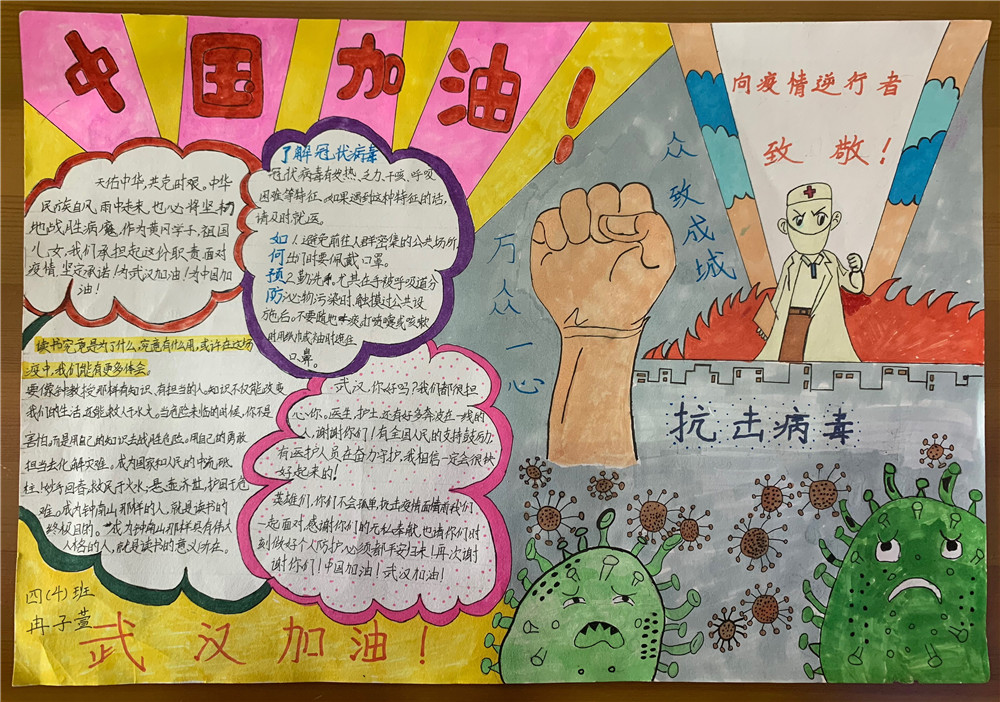 中国加油！
天佑中华，共克时艰。中华
民族自风雨中走来，也必将坚韧
地战胜病魔，作为黄冈学子，祖国
儿女，我们承担起这份职责面对
疫情，坚定承诺！为武汉加油！为中国加
油！
了解冠状病毒
冠状病毒有发热、乏力、干咳、呼吸
困难等特征。如果遇到这种特征的话，
请及时就医。
如何预防
1.避免前往人群密集的公共场所
出门时要佩戴口罩。
2.勤洗手。尤其在手被呼吸道分
泌物污染时、触摸过公共设
施后。不要随地吐痰，打喷嚏或咳嗽
时用纸巾或袖肘遮住
口、鼻。
读书究竟是为了什么，究竟有什么用，或许在这场
疫中，我们能有更多体会。
要像钟教授那样有知识、有担当的人。知识不仅能改变
我们的生活，还能救人于水火。当危险来临的时候，你不是
害怕，而是用自己的知识去战胜危险。用自己的勇敢
担当去化解灾难。成为国家和人民的中流砥
柱！妙手回春，救民于水火；悬壶济世，护国于危
难。成为钟南山那样的人，就是读书的
终极目的。成为钟南山那样具有伟大
人格的人，就是读书的意义所在。
武汉，你好吗？我们都很担
心你。医生、护士还有好多奔波在一线的
人，谢谢你们！有全国人民的支持鼓励，
有医护人员在奋力守护，我相信一定会很快
好起来的！
英雄们，你们不会孤单，抗击疫情面前我们
一起面对，感谢你们的无私奉献，也请你们时
刻做好个人防护，必须都平安归来！再次谢
谢你们！中国加油！武汉加油！
四(4)班
冉子萱
武汉加油！
万众一心
众致成城
向疫情逆行者
致敬！
抗击病毒